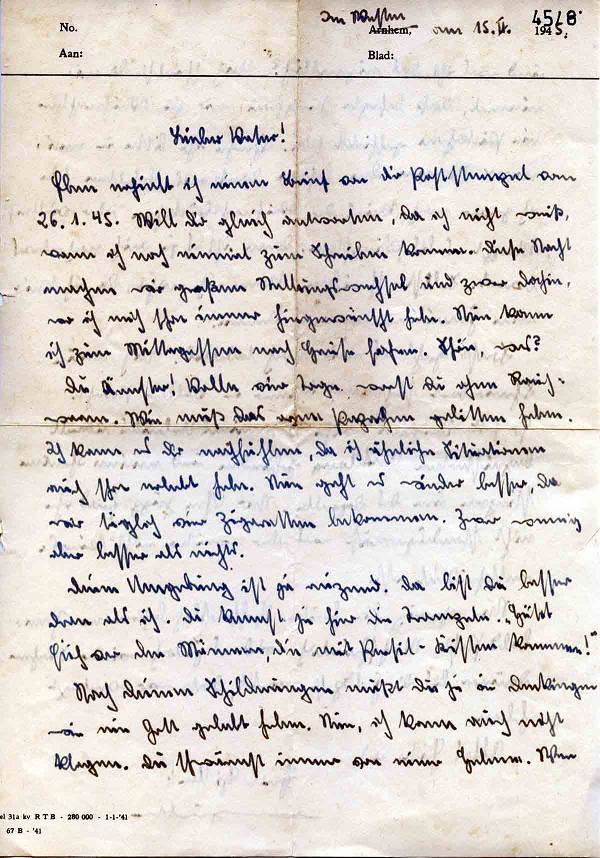 No.
Im Westen
Arnhem, am 15. II. 1945.
45/8
Aan:
Blad:
Lieber Vater!
Eben erhielt ich einen Brief von die Poststempel vom
26.1.45. Will dir gleich antworten, da ich nicht weiß,
wann ich noch einmal zum Schreiben komme. Diese Nacht
machen wir großen Stellungswechsel und zwar dorthin,
wo ich mich schon immer hingewünscht habe. Nun kann
ich zum Mittagessen nach Hause fahren. Schön, was?
Du Ärmster! Volle vier Tage warst du ohne Rauch-
waren. Wie muß das arme gelitten haben.
Ich kann es dir nachfühlen, da ich ähnliche Situationen
auch schon erlebt habe. Nun geht es wieder besser, da
wir täglich vier Zigaretten bekommen. Zwar wenig
aber besser als nichts.
Deine Umgebung ist ja reizend. Da bist du besser
dran als ich. Du kennst ja hier die Parole. "Hütet
Euch vor den Männern, die mit Persil-Kisten kommen!"
Nach deinen Schilderungen mußt du ja in
wie ein Gott gelebt haben. Nun, ich kann auch nicht
klagen. Du schwärmst immer von einer . Wenn
el 31a kv R T B - 280 000 - 1-1-'41
67 B - '41